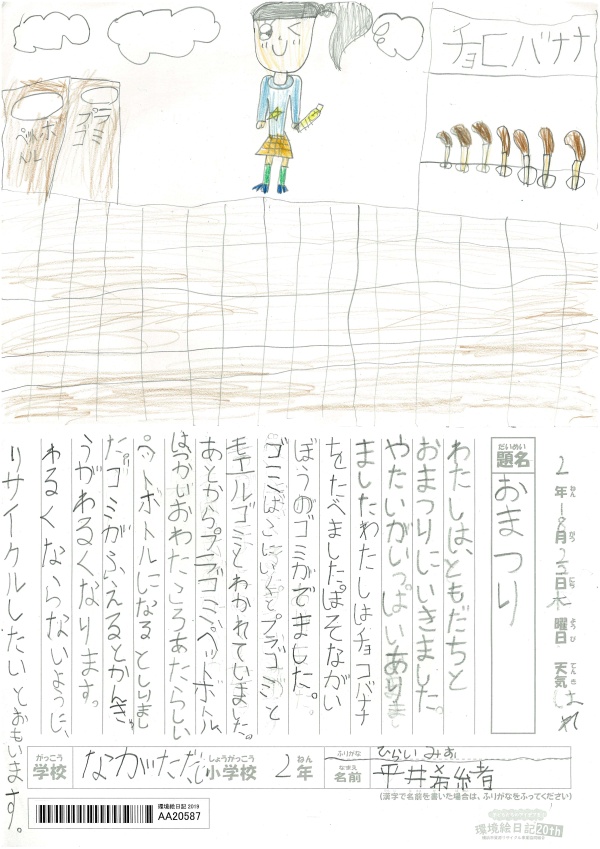 チョコバナナ
ペットボトル
プラゴミ
2年 月 日 木曜日 天気 はれ
題名 おまつり
わたしは、ともだちと
おまつりにいきました。
やたいがいっぱいあり
ましたわたしはチョコバナナ
をたべましたほそながい
ぼうのゴミがでました。
ゴミはこ プラゴミと
モエルゴミとわかれていました。
あとからプラゴミ、ペットボトル
はつかいおわたころあたらしい
ペットボトルになるとしりまし
たゴミがふえるとかんきょ
うがわるくなります。
わるくならないように、
リサイクルしたいとおもいます。
がっこう しょうがっこう ねん ふりがな ひらい みお
学校 小学校 2年 なまえ 名前 平井希
(漢字で名前を書いた場合は、ふりがなをふってください)
環境絵日記 2019
AA20587
環境絵日記 20th